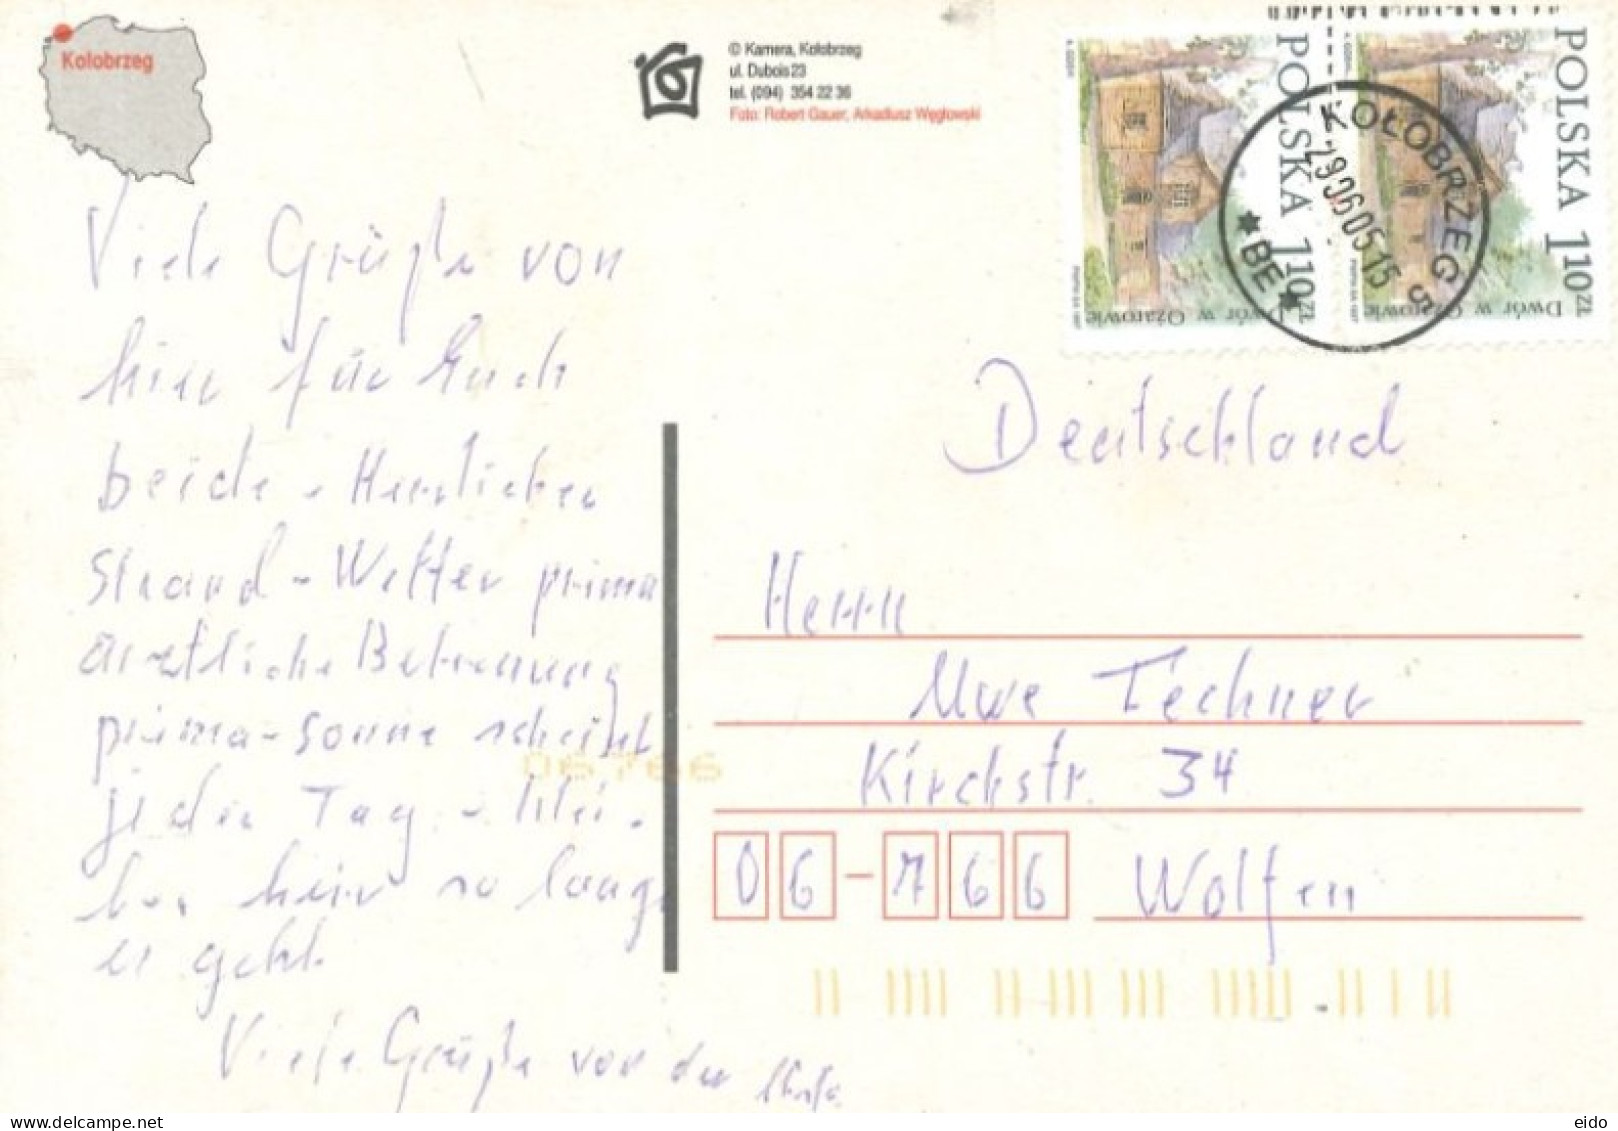 Kołobrzeg
© Kamera, Kołobrzeg
ul. Dubois 23
tel. (094) 354 22 36
Foto: Robert Gauer, Arkadiusz Węgłowski
POLSKA 110 ZŁ
Dwór w Ożarowie
POLSKA 110 ZŁ
Dwór w Ożarowie
KOŁOBRZEG 5
* BE *
Viele Grüße von
hier für Euch
beide - Herrlicher
Strand - Wetter prima
ärztliche Betreuung
prima - Sonne scheint
jeden Tag -
hier so lange
es geht.
Viele Grüße von der
Deutschland
Herrn
Uwe Techner
Kirchstr. 34
06-766 Wolfen
06766
eido